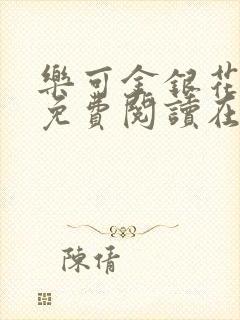 樂可金銀花
免費閱讀在
陳倩